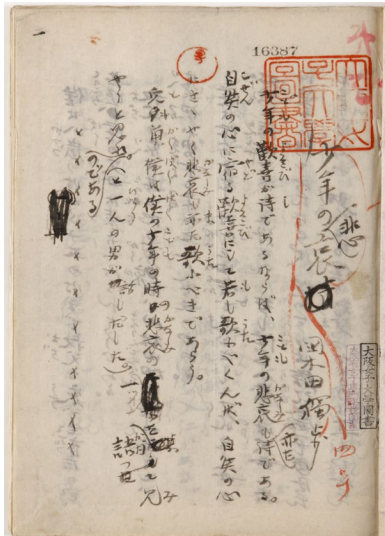 16387
少年の悲哀
国木田獨歩
少年の歡喜が詩であるならば、少年の悲哀も亦た詩である。
自然の心に宿る歡喜にして若し歌ふべくんば、自然の心
にさゝやく悲哀も亦た歌ふべきであらう。
兎も角、僕は僕の少年の時の悲哀の一ツを語つて見
やうと思ふのである。(と一人の男が話しだした。)